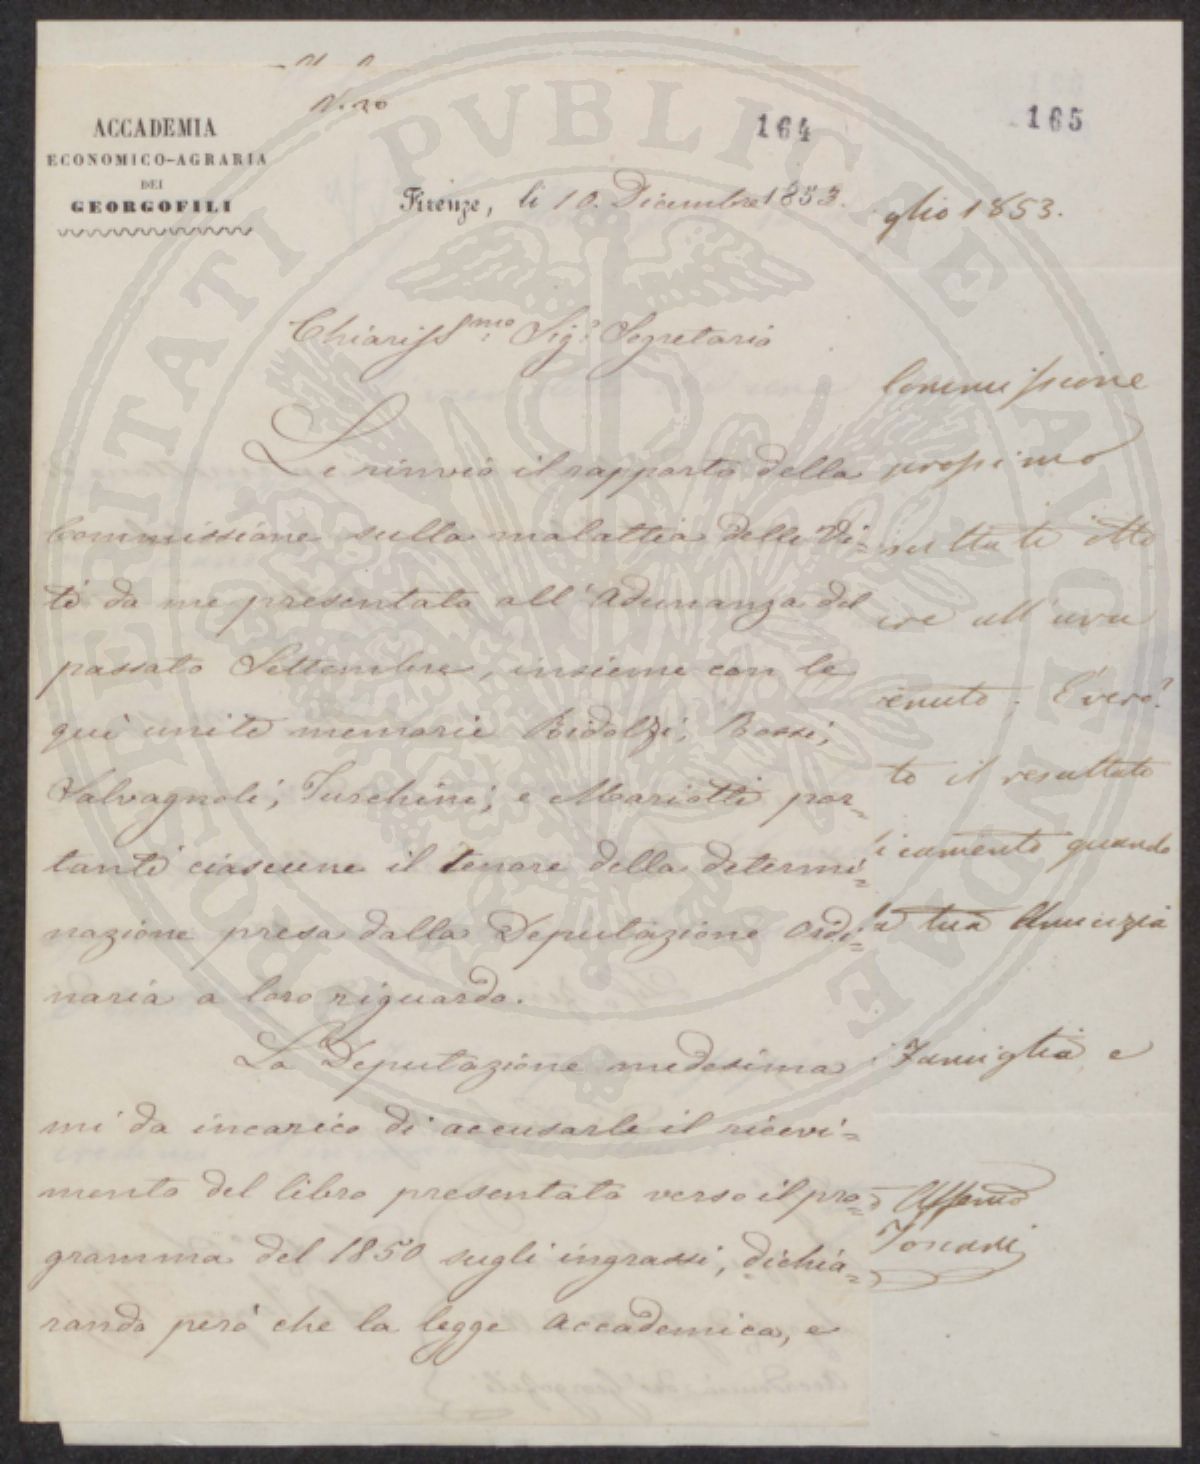 N. 20
ACCADEMIA
ECONOMICO-AGRARIA
DEI
GEORGOFILI
164
Firenze, li 10. Dicembre 1853.
Chiariss.mo Sig.e Segretario
Le rinvio il rapporto della
Commissione sulla malattia delle Vi=
ti da me presentato all'Adunanza del
passato Settembre, insieme con le
qui unite memorie Ridolfi; Rossi;
Salvagnoli; Turchini; e Mariotti por=
tanti ciascune il tenore della determi=
nazione presa dalla Deputazione Ordi=
naria a loro riguardo.
La Deputazione medesima
mi da incarico di accusarle il ricevi=
mento del libro presentato verso il pro=
gramma del 1850 sugli ingrassi, dichia=
rando però che la legge Accademica, e
165
glio 1853.
Commissione
prossimo
sultati otte
ire all uva
venuto. È vero?
to il resultato
icamente quando
la tua Amicizia
Famiglia e
Affemo
PVBLICAE